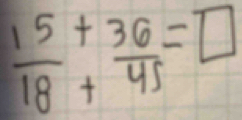 15/18 + + 36/45 = □